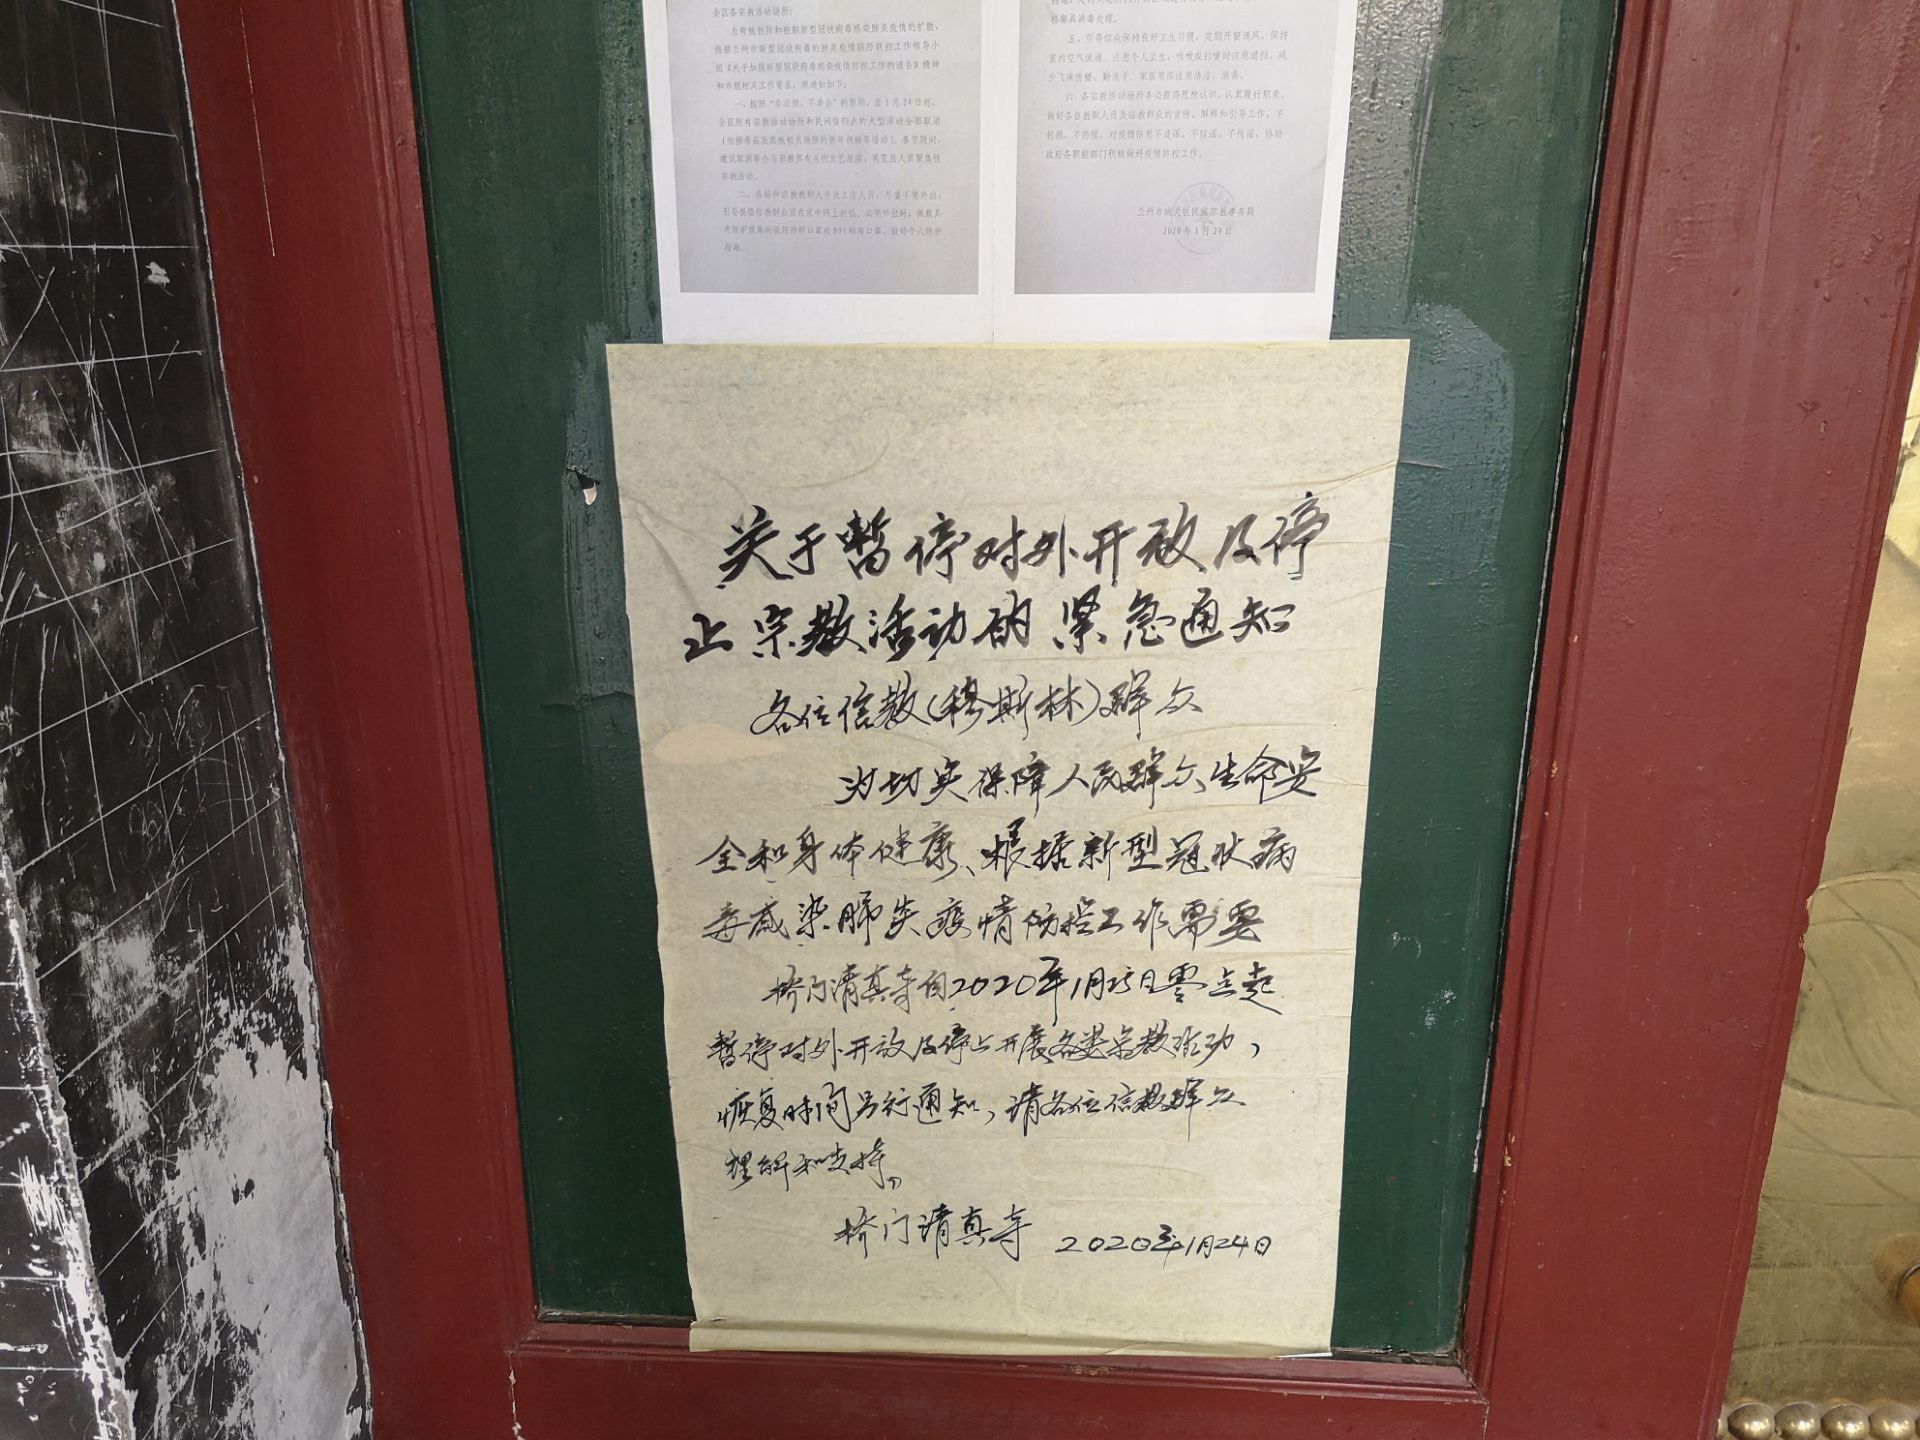 全区各宗教活动场所:
为有效预防和控制新型冠状病毒感染肺炎疫情的扩散,
根据兰州市新型冠状病毒的肺炎疫情联防联控工作领导小
组《关于加强新型冠状病毒感染疫情防控工作的通告》精神
和市级相关工作要求,现通知如下:
一、按照“非必须,不举办”的原则,自1月24日起,
全区所有宗教活动场所和民间信仰点的大型活动全部取消
(包括寺庙及其他相关场所的新年祈福等活动)。春节期间,
建议取消举办与宗教界有关的文艺展演、展览及人员聚集性
宗教活动。
二、各场所宗教教职人员及工作人员,尽量不要外出,
引导提倡信教群众皆在家中网上祈福。必须外出时,佩戴具
有防护效果的医用外科口罩或N95标准口罩,做好个人防护
措施。
格餐具消毒处理。
五、引导信众保持良好卫生习惯,定期开窗通风,保持
室内空气流通。注意个人卫生,咳嗽或打喷时注意遮挡,减
少飞沫传播,勤洗手,家居用品注意清洁、消毒。
六、各宗教活动场所务必提高思想认识,认真履行职责,
做好各自教职人员及信教群众的宣传、解释和引导工作,不
轻视、不恐慌,对疫情信息不造谣、不信谣、不传谣,协助
政府各职能部门积极做好疫情防控工作。
兰州市城关区民族宗教事务局
2020年1月24日
关于暂停对外开放及停
止宗教活动的紧急通知
各位信教(穆斯林)群众
为切实保障人民群众生命安
全和身体健康、根据新型冠状病
毒感染肺炎疫情防控工作需要
桥门清真寺自2020年1月25日零点起
暂停对外开放及停止开展各类宗教活动,
恢复时间另行通知,请各位信教群众
理解和支持。
桥门清真寺 2020年1月24日